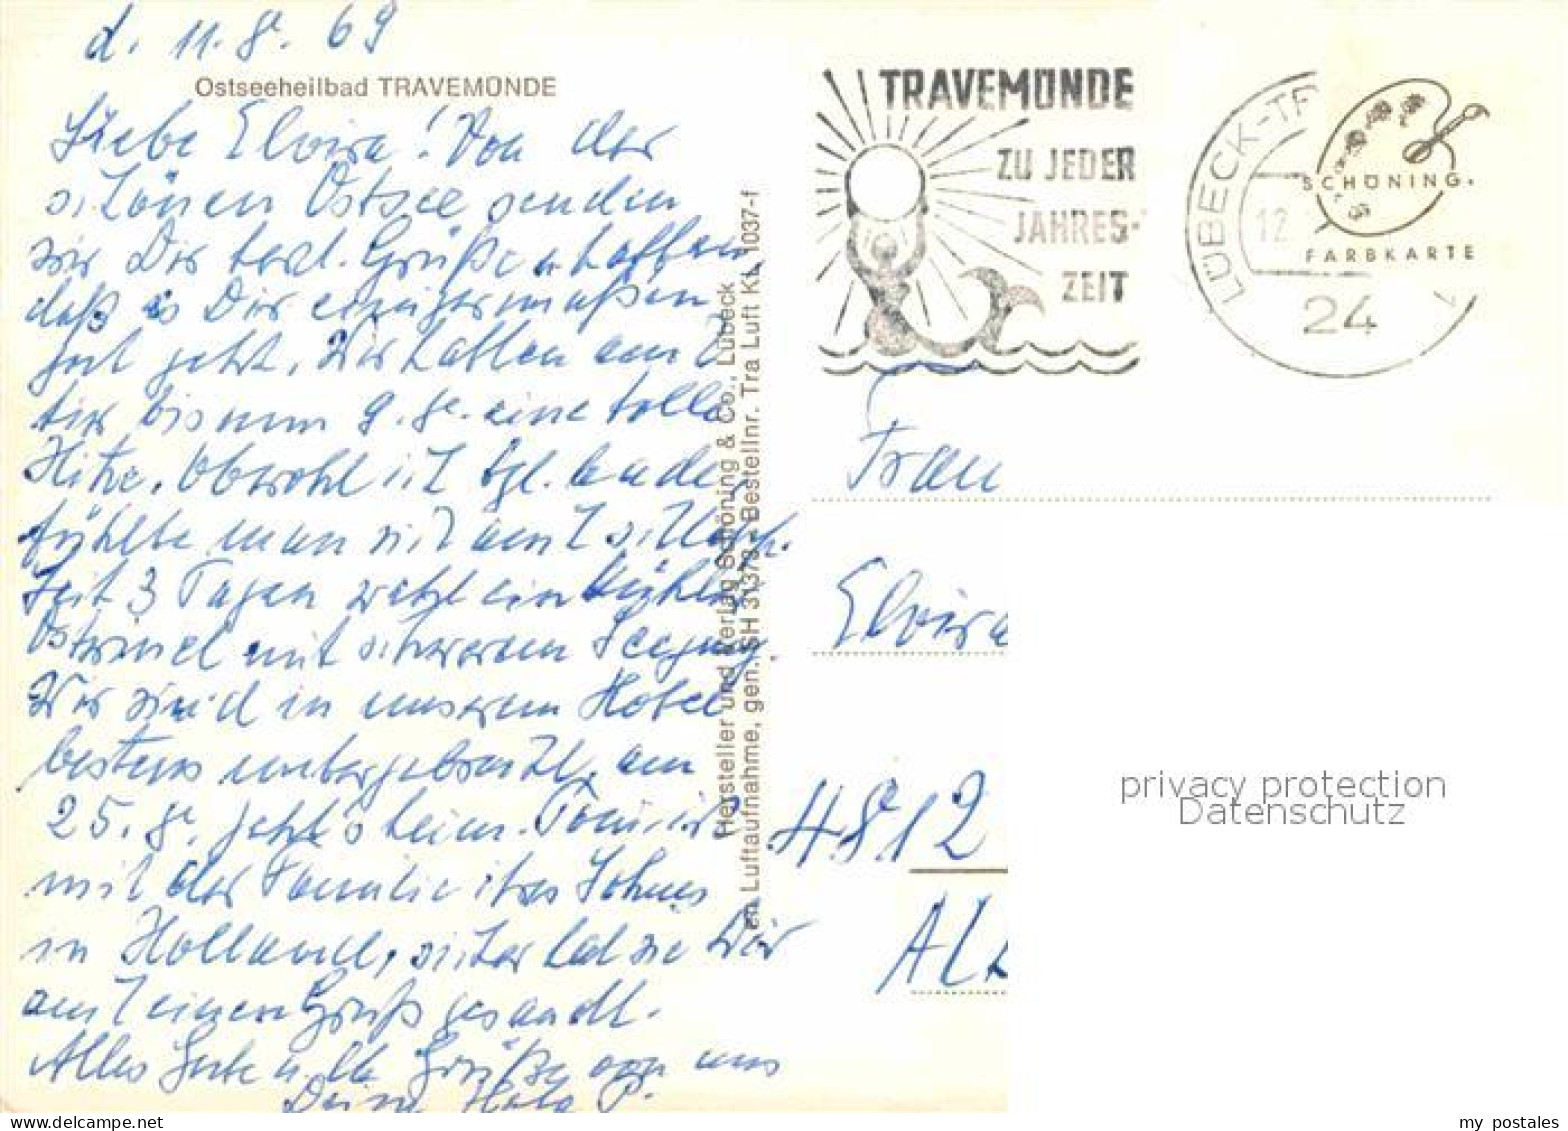 d. 11.8. 69
Ostseeheilbad TRAVEMÜNDE
Liebe Elvira! Von der
schönen Ostsee senden
wir Dir herzl. Grüße u. hoffen
daß es Dir einigermaßen
gut geht. Wir hatten auch
hier bis zum 9.8. eine tolle
Hitze. Obwohl ich tgl. bade
fühlte man sich auch schlapp.
Seit 3 Tagen weht ein kühler
Ostwind mit schwerem Seegang.
Wir sind in unserem Hotel
bestens untergebracht, am
25.8. geht's heim. ist
mit der Familie ihres Sohnes
in Holland, sicher hat sie Dir
auch einen Gruß gesandt.
Alles Gute u. lb. Grüße von uns
Deine
Hersteller und Verlag Schöning & Co., Lübeck
en Luftaufnahme, gen. SH 31373 - Bestellnr. Tra Luft KL 1037-f
TRAVEMÜNDE
ZU JEDER
JAHRES-
ZEIT
LÜBECK-TR
12
24
SCHÖNING.
FARBKARTE
Frau
Elvira
4812
privacy protection
Datenschutz
my postales